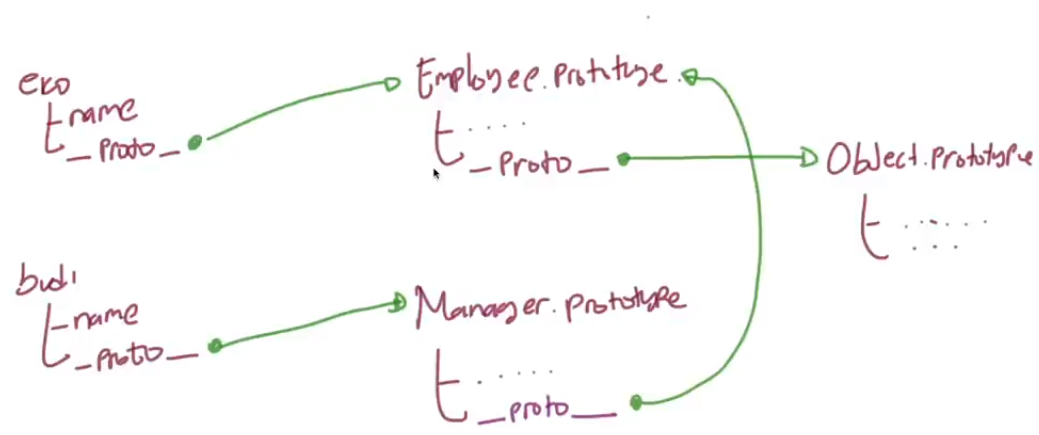 eko
name
_proto_
Employee.Prototype
.....
_Proto_
Object.Prototype
......
...
budi
name
_proto_
Manager.Prototype
......
_proto_